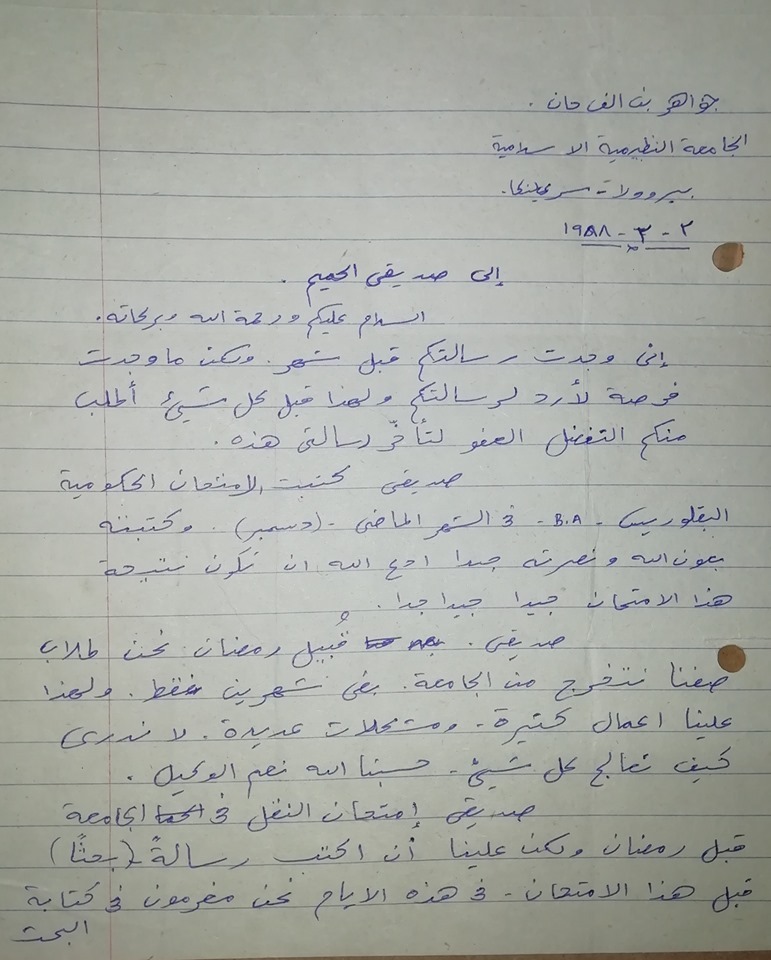 جواهر بن الف خان .
الجامعة النظيمية الاسلامية
بيروولات سريلنكا.
٢ - ٣ - ١٩٨٨
إلى صديقي الحميم .
السلام عليكم ورحمة الله وبركاته.
إني وجدت رسالتكم قبل شهر. ولكن ما وجدت
فرصة لأرد لرسالتكم ولهذا قبل كل شيئ أطلب
منكم التفضل العفو لتأخّر رسالتي هذه.
صديقي كتبت الامتحان الحكومية
البقلوريس - B.A - في الشهر الماضي - (دسمبر) . وكتبته
بعون الله ونصرته جيدا ادع الله ان تكون نتيجة
هذا الامتحان جيدا جيدا جدا .
صديقي . قُبيل رمضان نحن طلاب
صفنا نتخرج من الجامعة. بقي شهرين فقط . ولهذا
علينا اعمال كثيرة - ومشكلات عديدة . لا ندرى
كيف نعالج كل شيئ - حسبنا الله نعم الوكيل .
صديقي إمتحان النقل في الجامعة
قبل رمضان ولكن علينا أن اكتب رسالةً (بحثًا)
قبل هذا الامتحان - في هذه الايام نحن مغرمون في كتابة
البحث